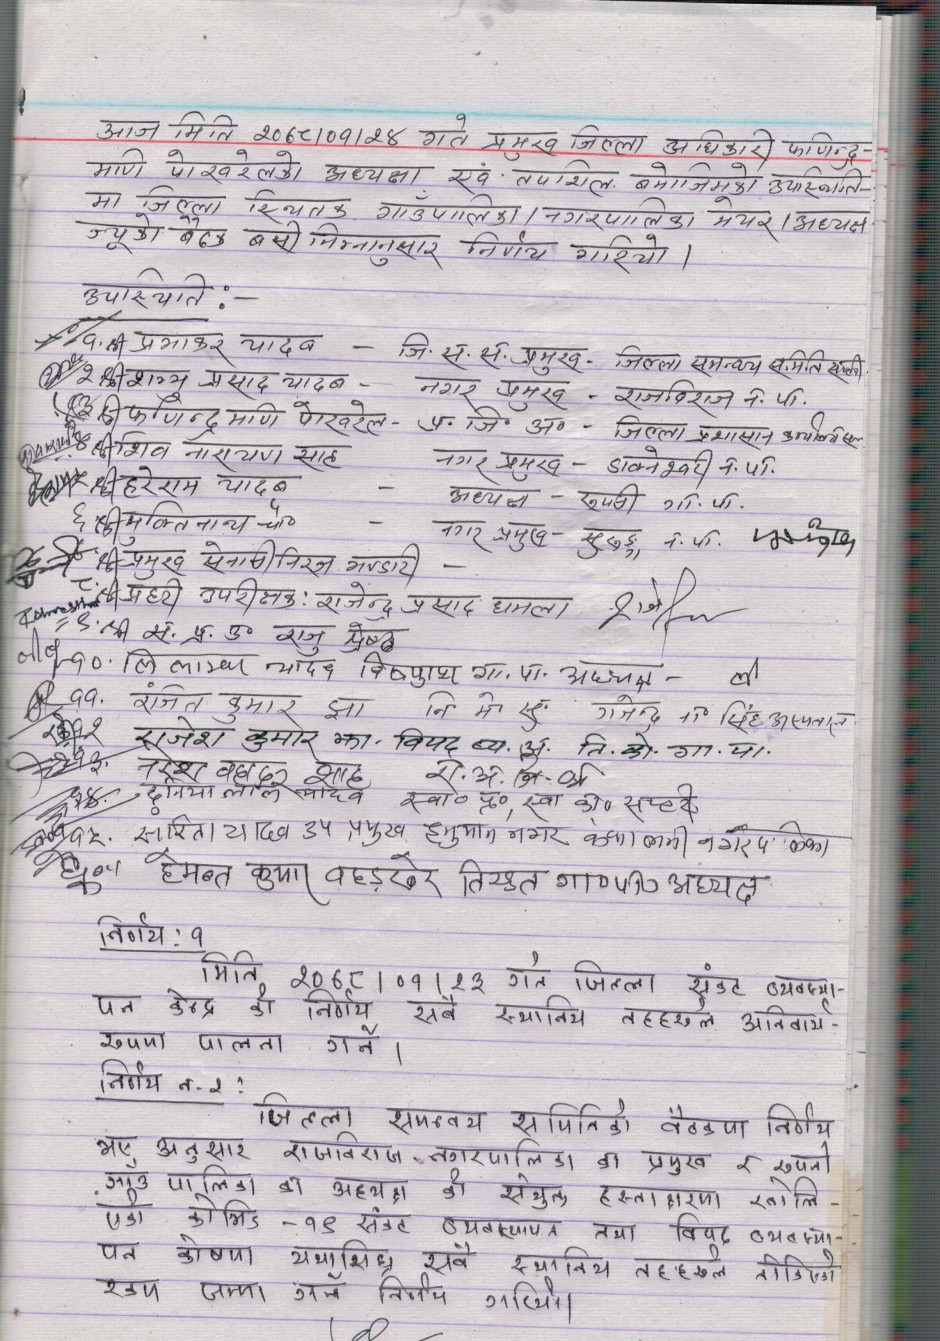 आज मिति २०७८/०१/२४ गते प्रमुख जिल्ला अधिकारी फणिन्द्र-
मणि पोखरेलको अध्यक्षता एवं तपाशिल बमोजिमको उपस्थिति-
मा जिल्ला स्थितक गाउँपालिका/नगरपालिका मेयर/अध्यक्ष
ज्यूको बैठक बसी निम्नानुसार निर्णय गरियो।
उपस्थिति :-
१. श्री प्रभाकर यादव - जि. स. स. प्रमुख - जिल्ला समन्वय समिति सप्तरी
२. श्री शम्भु प्रसाद यादव - नगर प्रमुख - राजविराज न. पा.
३. श्री फणिन्द्र मणि पोखरेल - प्र. जि. अ० - जिल्ला प्रशासन कार्यालय
४. श्री शिव नारायण साह नगर प्रमुख - डाक्नेश्वरी न. पा.
श्री हरेराम यादव - अध्यक्ष - रूपनी गा. पा.
६. श्री मुक्ति नाथ चौ० - नगर प्रमुख - सुरुङ्गा न. पा.
श्री प्रमुख सेनानी निरज भण्डारी -
८. श्री प्रहरी उपरीक्षक: राजेन्द्र प्रसाद धमला
९. श्री स. प्र. उ० राजु श्रेष्ठ
१०. लिलाम्बर यादव विष्णुपुर गा. पा. अध्यक्ष -
११. रंजित कुमार झा नि मे सु गजेन्द्र ना० सिंह अस्पताल
१२ राजेश कुमार झा. विपद व्य. अ. ति. को. गा. पा.
१३. नरेश बहादुर शाह
१४. दुनिया लाल यादव स्वा० प्र०, स्वा का० सप्तरी
१५. सरिता यादव उप प्रमुख हनुमान नगर कंकालिनी नगरपालिका
हेमन्त कुमार वहडखेर तिरहुत गा०पा० अध्यक्ष
निर्णय : १
मिति २०७८/०१/२३ गते जिल्ला संकट व्यवस्था-
पन केन्द्र को निर्णय सबै स्थानिय तहहरुले अनिवार्य-
रुपमा पालना गर्ने।
निर्णय न-२ :
जिल्ला समन्वय समितिको बैठकमा निर्णय
भए अनुसार राजविराज नगरपालिका का प्रमुख र रुपनी
गाउँ पालिका का अध्यक्ष को संयुक्त हस्ताक्षरमा खोलि-
एको कोभिड -१९ संकट व्यवस्थापन तथा विपद व्यवस्था-
पन कोषमा यथाशिघ्र सबै स्थानिय तहहरुले तोकिएको
रकम जम्मा गर्ने निर्णय गरियो।